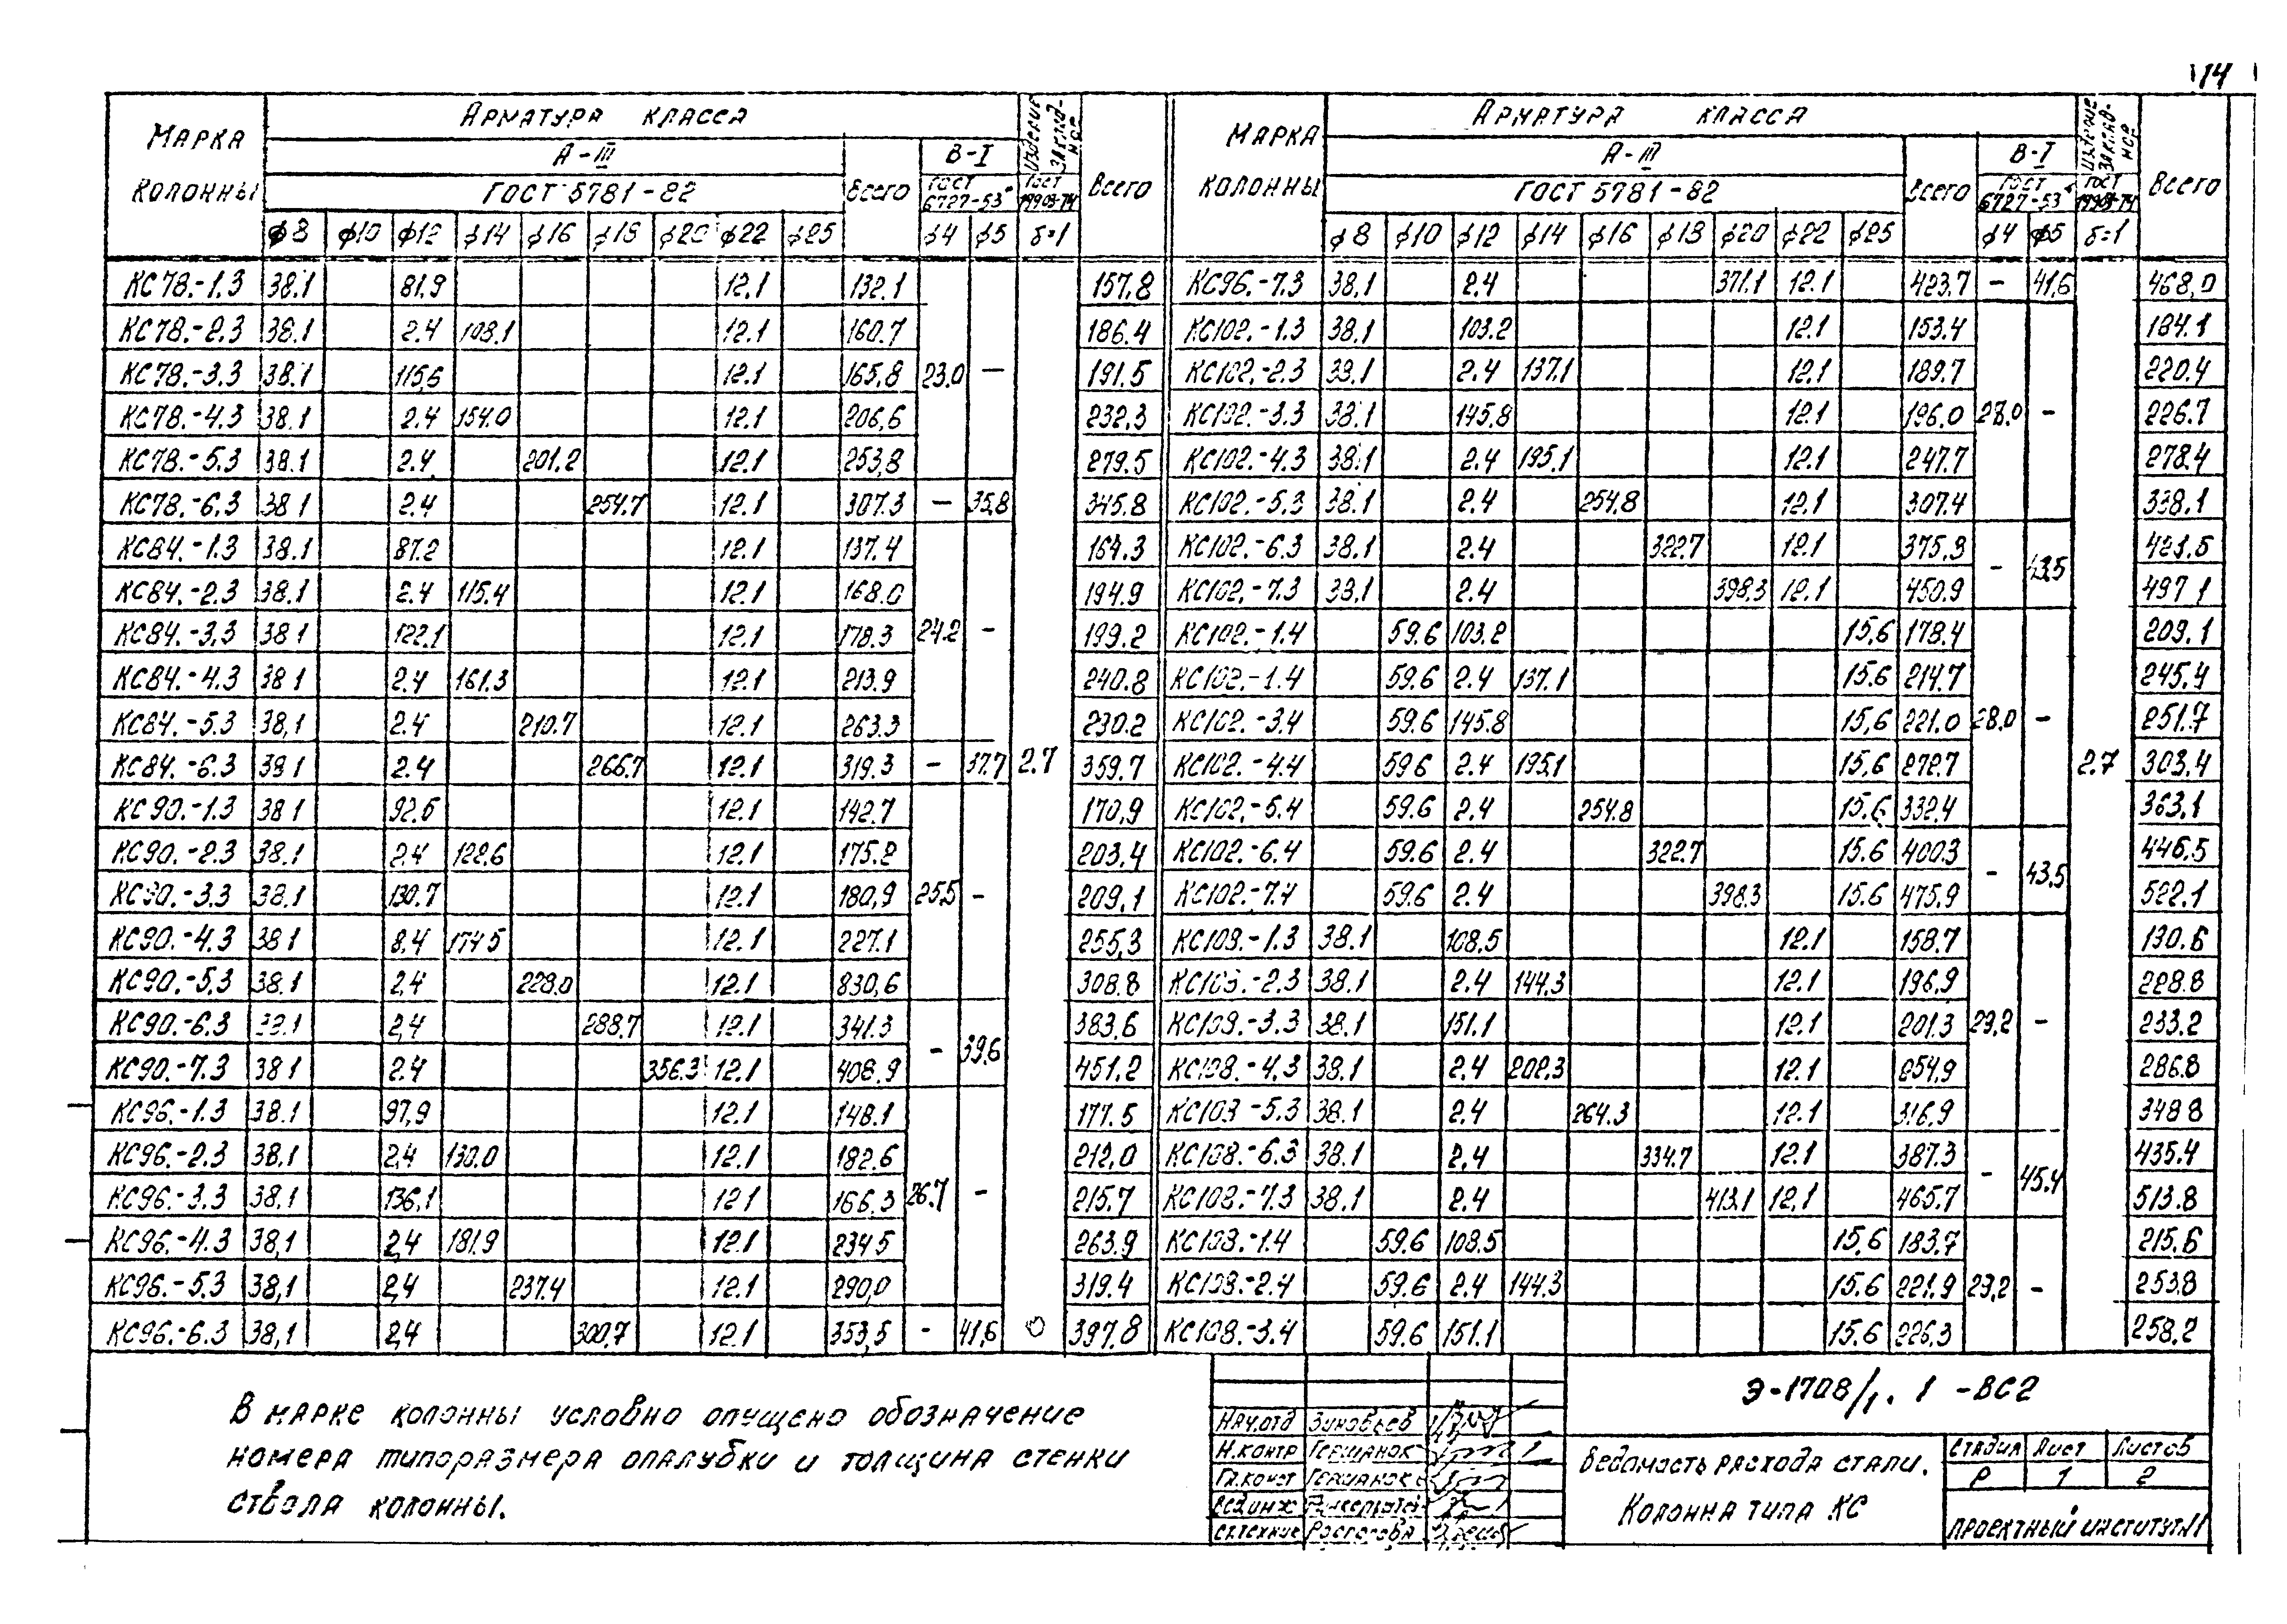 14
Марка колонны | Арматура класса | Изделие закладное | Всего | Марка колонны | Арматура класса | Изделие закладное | Всего
А-III | Всего | В-I | А-III | Всего | В-I
ГОСТ 5781-82 | ГОСТ 6727-53* | ГОСТ 19903-74 | ГОСТ 5781-82 | ГОСТ 6727-53* | ГОСТ 19903-74
ф8 ф10 ф12 ф14 ф16 ф18 ф20 ф22 ф25 ф4 ф5 δ=1 ф8 ф10 ф12 ф14 ф16 ф18 ф20 ф22 ф25 ф4 ф5 δ=1
КС78.-1.3 38.1 81.9 12.1 132.1 157.8 КС96.-7.3 38.1 2.4 371.1 12.1 423.7 - 41.6 468.0
КС78.-2.3 38.1 2.4 108.1 12.1 160.7 186.4 КС102.-1.3 38.1 103.2 12.1 153.4 184.1
КС78.-3.3 38.1 115,6 12.1 165.8 23.0 - 191.5 КС102.-2.3 38.1 2.4 137.1 12.1 189.7 220.4
КС78.-4.3 38.1 2.4 154.0 12.1 206,6 232.3 КС102.-3.3 38.1 145.8 12.1 196.0 28.0 - 226.7
КС78.-5.3 38.1 2.4 201.2 12.1 253,8 279.5 КС102.-4.3 38.1 2.4 195.1 12.1 247.7 278.4
КС78.-6.3 38 1 2.4 254.7 12.1 307.3 - 35,8 345.8 КС102.-5.3 38.1 2.4 254.8 12.1 307.4 338.1
КС84.-1.3 38.1 87.2 12.1 137.4 164.3 КС102.-6.3 38.1 2.4 322.7 12.1 375.3 421.5
КС84.-2.3 38.1 2.4 115.4 12.1 168.0 194.9 КС102.-7.3 38.1 2.4 398.3 12.1 450.9 - 43.5 497 1
КС84.-3.3 38 1 122.1 12.1 178.3 24.2 - 199.2 КС102.-1.4 59.6 103.2 15,6 178.4 209.1
КС84.-4.3 38 1 2.4 161.3 12.1 213.9 240.8 КС102.-1.4 59.6 2.4 137.1 15.6 214.7 245.4
КС84.-5.3 38,1 2.4 210.7 12.1 263.3 230.2 КС102.-3.4 59.6 145.8 15,6 221.0 28.0 - 251.7
КС84.-6.3 38 1 2.4 266.7 12.1 319.3 - 37.7 2.7 359.7 КС102.-4.4 59 6 2.4 195.1 15,6 272.7 2.7 303.4
КС90.-1.3 38 1 92.6 12.1 142.7 170,9 КС102,-5.4 59.6 2.4 254.8 15.6 332.4 363,1
КС90.-2.3 38.1 2.4 122.6 12.1 175.2 203.4 КС102.-6.4 59.6 2.4 322.7 15.6 400.3 446.5
КС90.-3.3 38.1 130.7 12.1 180,9 25,5 - 209,1 КС102.-7.4 59.6 2.4 398.3 15.6 475.9 - 43,5 522.1
КС90.-4.3 38 1 8.4 174 5 12.1 227.1 255,3 КС108.-1.3 38.1 108.5 12.1 158.7 130.6
КС90.-5.3 38.1 2,4 228.0 12.1 830,6 308.8 КС108.-2.3 38.1 2.4 144.3 12.1 196.9 228.8
КС90.-6.3 38.1 2,4 288.7 12.1 341.3 383.6 КС108.-3.3 38.1 151.1 12.1 201.3 29,2 - 233.2
КС90.-7.3 38 1 2.4 356.3 12.1 408.9 - 39,6 451.2 КС108.-4.3 38.1 2.4 202.3 12.1 254,9 286.8
КС96.-1.3 38.1 97,9 12.1 148.1 177.5 КС108-5.3 38.1 2.4 264.3 12.1 316,9 348 8
КС96.-2.3 38.1 2,4 130.0 12.1 182.6 212,0 КС108.-6.3 38.1 2.4 334.7 12.1 387.3 435.4
КС96.-3.3 38.1 136,1 12 1 166,3 26.7 - 215.7 КС108.-7.3 38.1 2.4 413.1 12,1 465.7 - 45.4 513.8
КС96.-4.3 38,1 2,4 181.9 12.1 234 5 263.9 КС108.-1.4 59.6 108.5 15,6 183.7 215.6
КС96.-5.3 38,1 2,4 237.4 12.1 290,0 319.4 КС108.-2.4 59.6 2.4 144.3 15.6 221.9 29,2 - 253.8
КС96.-6.3 38,1 2,4 300,7 12.1 353,5 - 41,6 397.8 КС108.-3.4 59.6 151.1 15.6 226,3 258.2
В марке колонны условно опущено обозначение
номера типоразмера опалубки и толщина стенки
ствола колонны.
Э-1708/1. 1 -ВС2
Нач.отд Зиновьев
Н.контр Гершанок
Гл.конст Гершанок
Вед.инж
Ст.техник
Ведомость расхода стали.
Колонна типа КС
Стадия Лист Листов
Р 1 2
Проектный институт №1